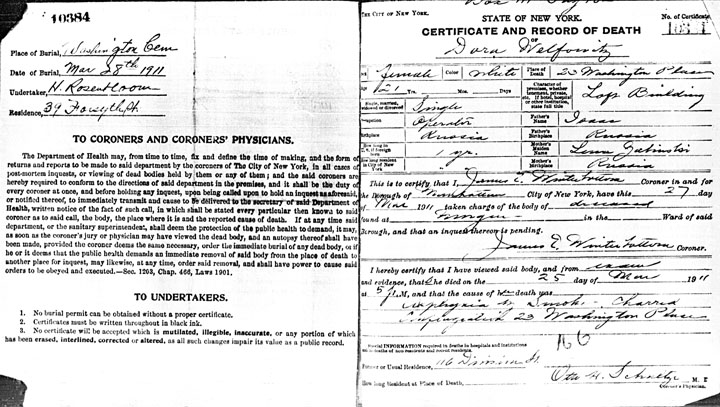 10384
Place of Burial, Washington Cem
Date of Burial, Mar 28th 1911
Undertaker, H. Rosenbloom
Residence, 39 Forsyth St
TO CORONERS AND CORONERS' PHYSICIANS.
The Department of Health may, from time to time, fix and define the time of making, and the form of
returns and reports to be made to said department by the coroners of The City of New York, in all cases of
post-mortem inquests, or viewing of dead bodies held by them or any of them; and the said coroners are
hereby required to conform to the directions of said department in the premises, and it shall be the duty of
every coroner at once, and before holding any inquest, upon being called upon to hold an inquest as aforesaid,
or notified thereof, to immediately transmit and cause to be delivered to the secretary of said Department of
Health, written notice of the fact of such call, in which shall be stated every particular then known to said
coroner as to said call, the body, the place where it is and the reported cause of death. If at any time said
department, or the sanitary superintendent, shall deem the protection of the public health to demand, it may,
as soon as the coroner's jury or physician may have viewed the dead body, and an autopsy thereof shall have
been made, provided the coroner deems the same necessary, order the immediate burial of any dead body, or if
he or it deems that the public health demands an immediate removal of said body from the place of death to
another place for inquest, may likewise, at any time, order said removal, and shall have power to cause said
orders to be obeyed and executed.—Sec. 1203, Chap. 466, Laws 1901.
TO UNDERTAKERS.
1. No burial permit can be obtained without a proper certificate.
2. Certificates must be written throughout in black ink.
3. No certificate will be accepted which is mutilated, illegible, inaccurate, or any portion of which
has been erased, interlined, corrected or altered, as all such changes impair its value as a public record.
THE CITY OF NEW YORK.
STATE OF NEW YORK.
No. of Certificate
CERTIFICATE AND RECORD OF DEATH
OF
Dora Welfowitz
female Color white Place of Death 23 Washington Place
21 Yrs. Mos. Days
Character of premises, whether tenement, private, etc. If hotel, hospital or other institution, state full title
Loft Building
Single, married, Single
Occupation Operator Father's Name Isaac
Birthplace Russia Father's Birthplace Russia
Mother's Maiden Name
Mother's Birthplace Russia
This is to certify that I, James E. Winterbottom Coroner in and for
the Borough of Manhattan City of New York, have this 27 day
of Mar 1911 taken charge of the body of deceased
found at morgue in the Ward of said
Borough, and that an inquest thereon is pending.
James E. Winterbottom Coroner.
I hereby certify that I have viewed said body, and from
and evidence, that she died on the 25 day of Mar 1911
at 5 P.M, and that the cause of her death was
Asphyxia by smoke - Charred
23 Washington Place
Special INFORMATION required in deaths in hospitals and institutions
and in deaths of non-residents and recent residents.
Former or Usual Residence, 116 Division St.
How long Resident at Place of Death,
Otto H. Schultze M. D.
Coroner's Physician.